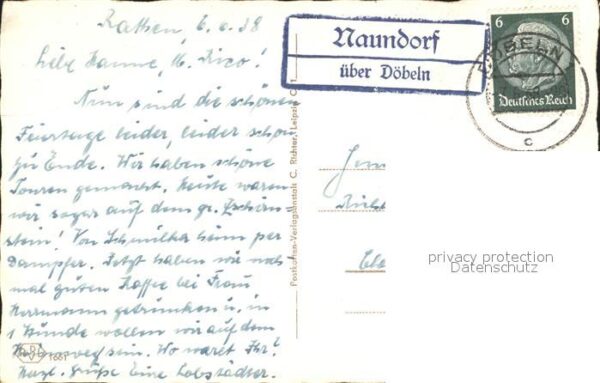 Rathen, 6.6.38
Liebe Hanne, lb. Rico!
Nun sind die schönen
Feiertage leider, leider schon
zu Ende. Wir haben schöne
Touren gemacht. Heute waren
wir sogar auf dem gr. Zschirn-
stein! Von Schmilka heim per
Dampfer. Jetzt haben wir noch
mal guten Kaffee bei Frau
Herrmann getrunken u. in
1 Stunde wollen wir auf dem
Heimweg sein. Wo waret Ihr?
Herzl. Grüße Eure Lobstädter.
1661
Postkarten-Verlagsanstalt C. Richter, Leipzig C 1
Naundorf
über Döbeln
6 6
Deutsches Reich
DÖBELN
c
privacy protection
Datenschutz